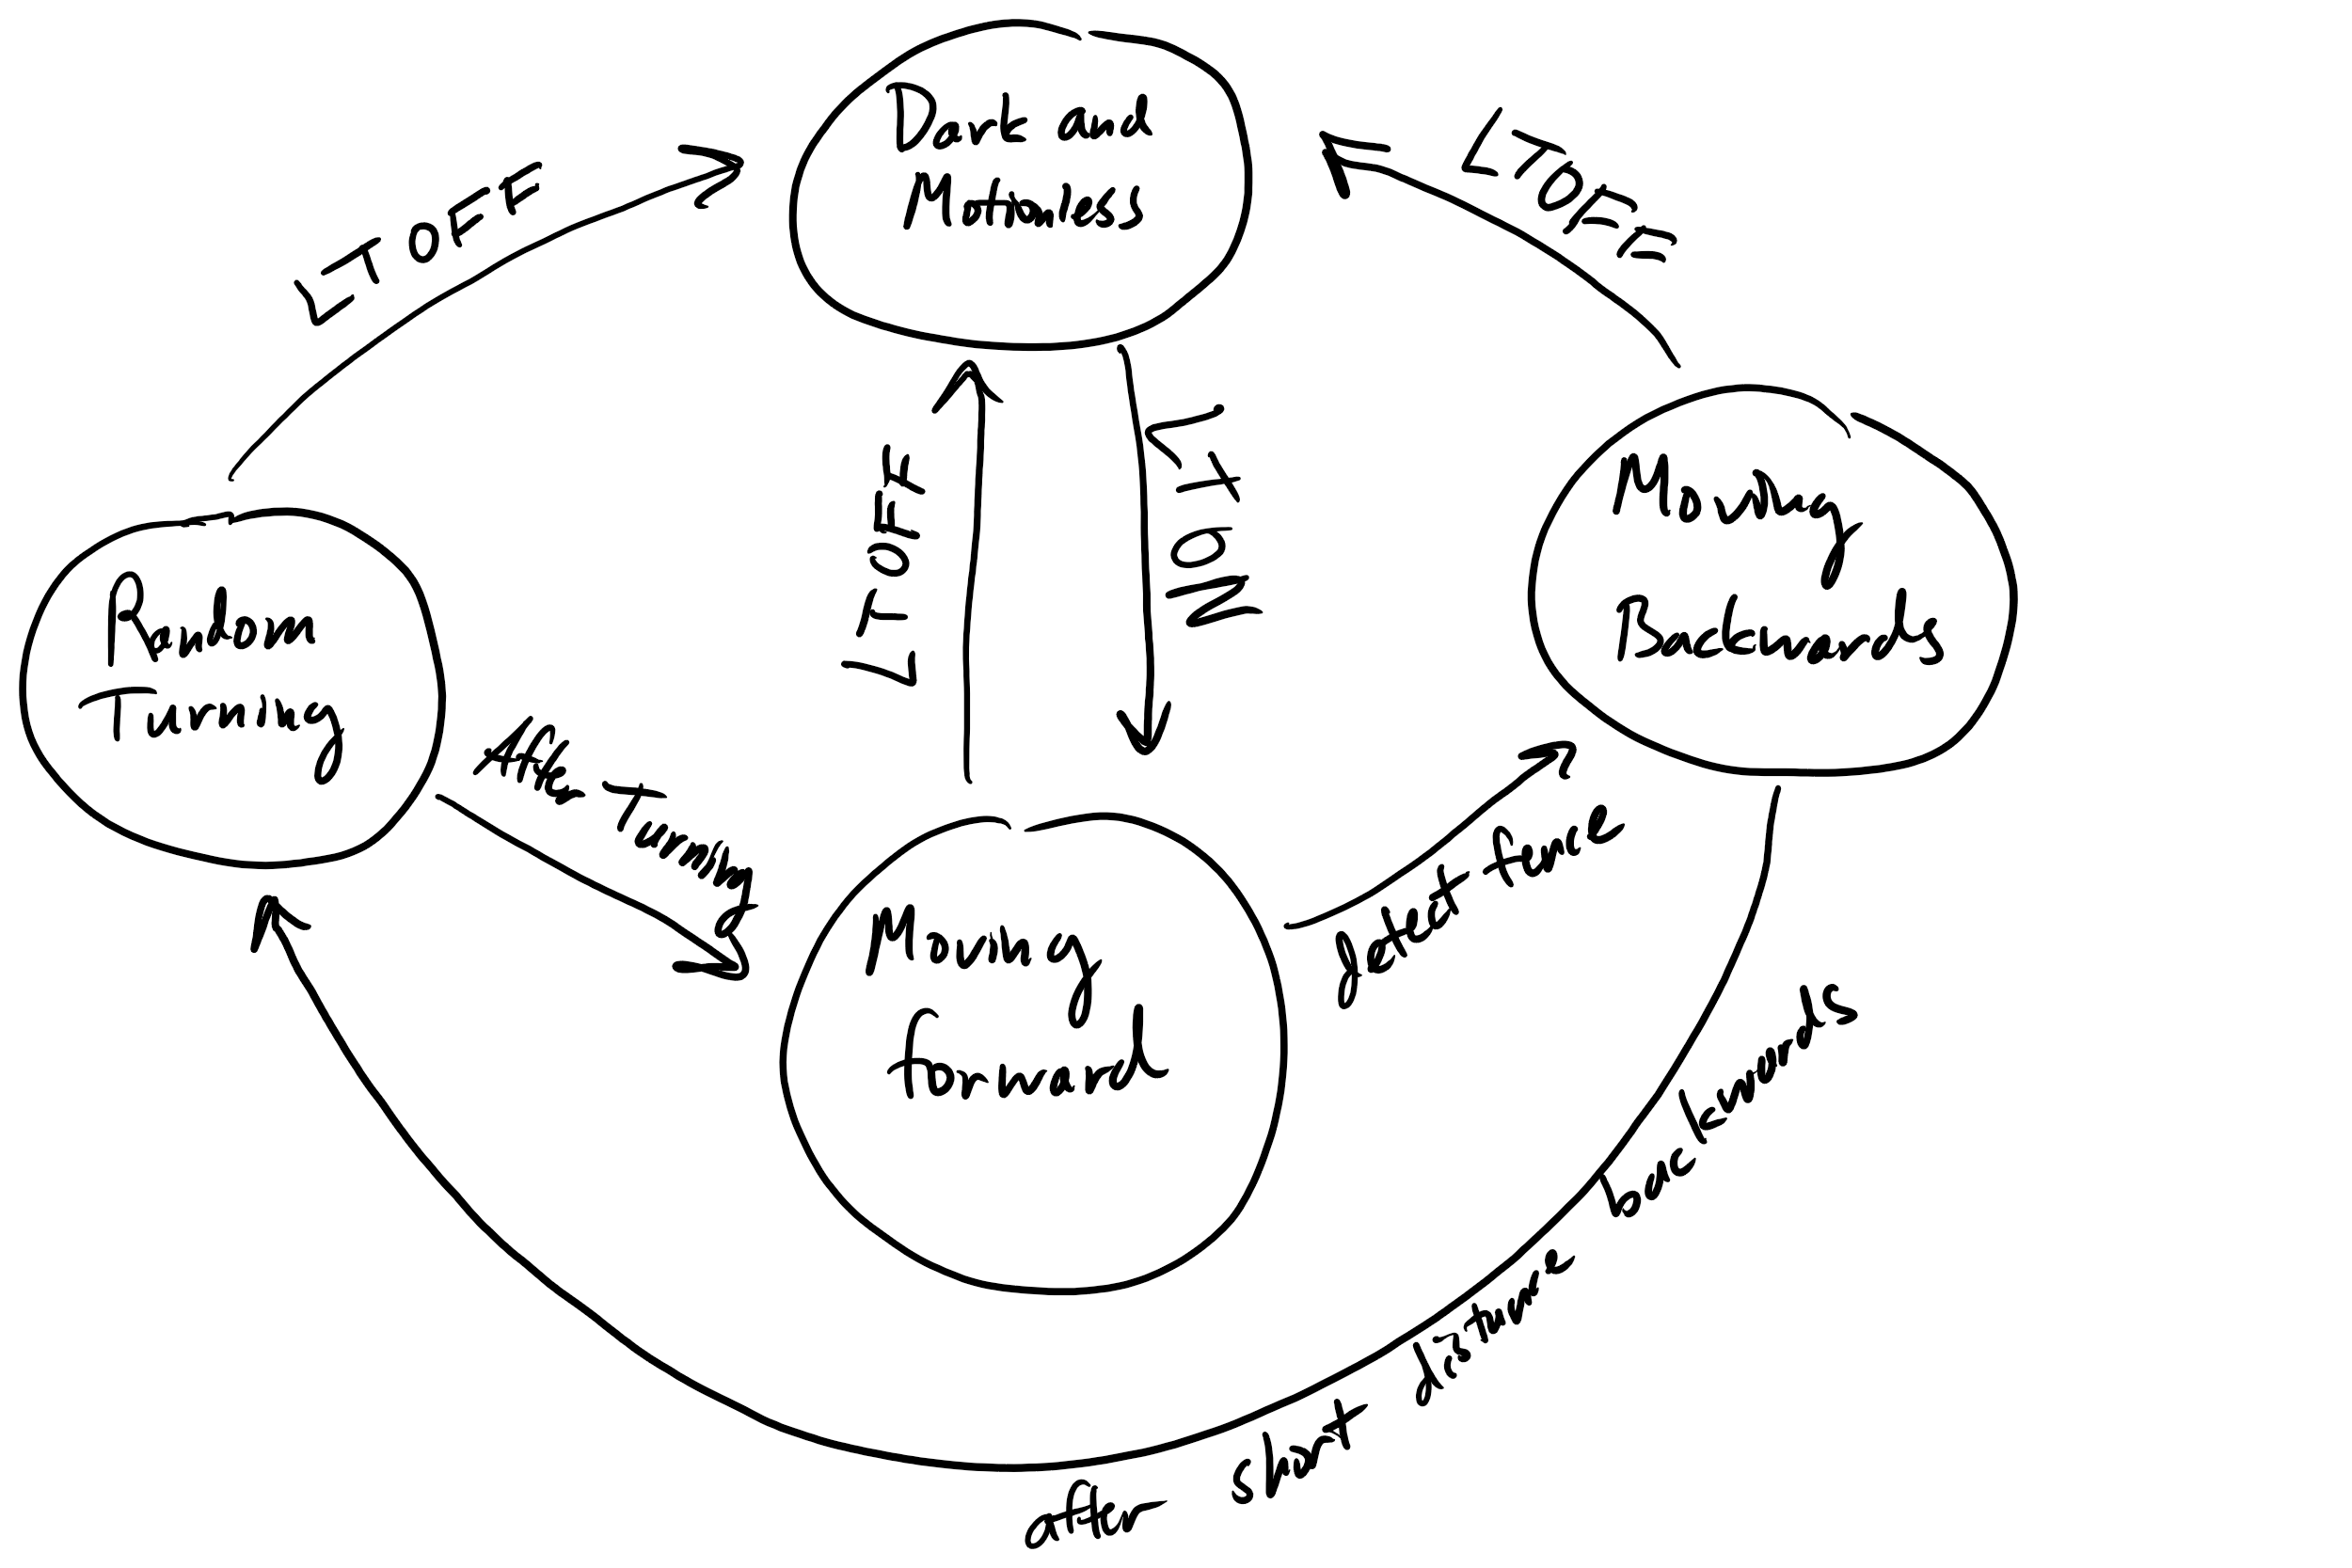 Dark and
Motionless
LTOFF
LTOFF
LTOFF
LTON
Random
Turning
Moving
Backwards
After Turning
Moving
forward
detect fence
after short distance backwards